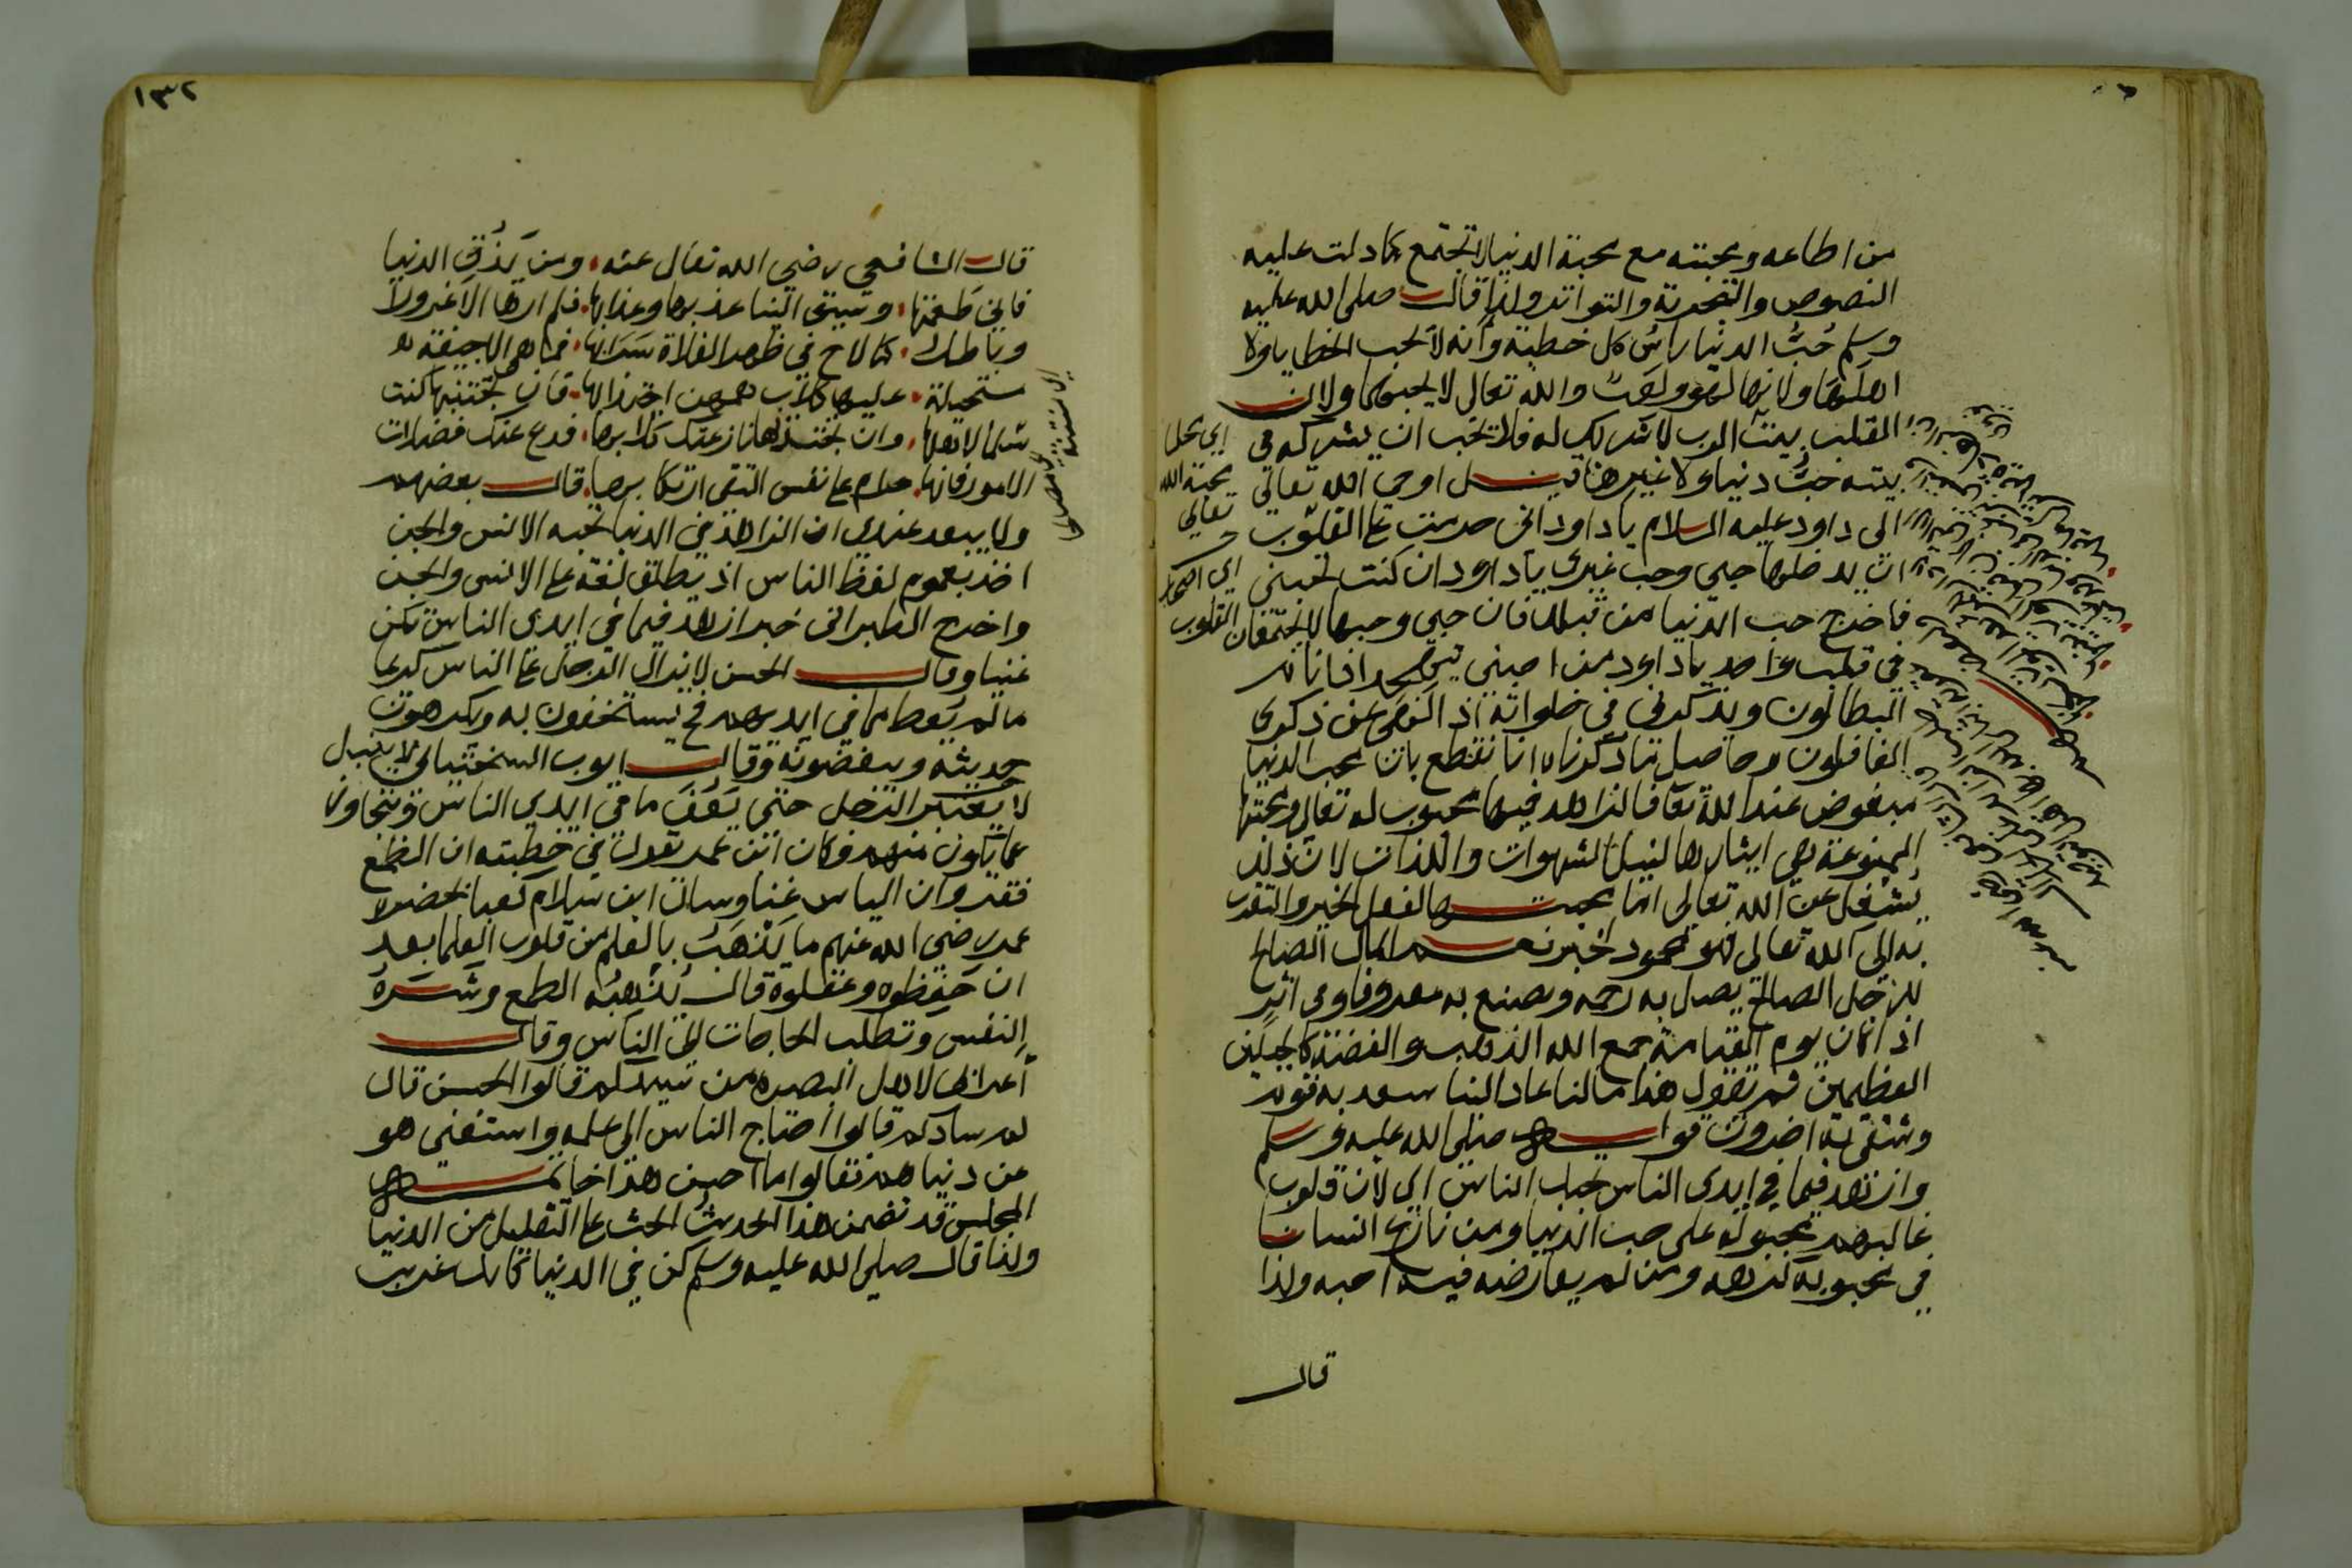 من اطاعه ومحبته مع محبة الدنيا لا تجتمع كما دلت عليه
النصوص والتجربة والتواتر ولذا قال صلى الله عليه
وسلم حُبُّ الدنيا راسُ كل خطيئة وانه لا يحب الخطايا ولا
اهلها ولانها لهو ولعب والله تعالى لا يحبهما ولان
القلب بيت الرب لا شريك له فلا يحب ان يشركه في
بيته حبُّ دنيا ولا غيرها قيل اوحى الله تعالى
الى داود عليه السلام يا داود اني حرمت على القلوب
ان يدخلها حبي وحب غيري يا داود ان كنت تحبني
فاخرج حب الدنيا من قلبك فان حبي وحبها لا يجتمعان
في قلب واحد يا داود من احبني يتهجد اذا نام
البطالون ويذكرني في خلواته اذا لهى عن ذكري
الغافلون وحاصل ما ذكرناه انا نقطع بان محب الدنيا
مبغوض عند الله تعا فالزاهد فيها محبوب له تعالى ومحبتها
الممنوعة هي ايثارها لنيل الشهوات واللذات لان ذلك
يشغل عن الله تعالى اما محبتها لفعل الخير والتقرب
به الى الله تعالى فهو محمود لخبر نعم المال الصالح
للرجل الصالح يصل به رحمه ويصنع به معروفا وفي اثر
اذا كان يوم القيامة جمع الله الذهب والفضة كالجبلين
العظيمين ثم يقول هذا مالنا عاد الينا سعد به قوم
وشقي به اخرون قوله صلى الله عليه وسلم
وازهد فيما في ايدي الناس يحبك الناس اي لان قلوب
غالبهم مجبولة على حب الدنيا ومن نازع انسانا
في محبوبه كرهه ومن لم يعارضه فيه احبه ولذا
قال
اي محل
محبة الله
تعالى
اي اصحاب
القلوب
١٣٢
قال الشافعي رضي الله تعالى عنه، ومن يَذُق الدنيا
فاني طعمتها، وسيق الينا عذبها وعذابها، فلم ارها الا غرورا
وباطلا، كما لاح في ظهر الفلاة سَرَابها، فما هي الا جيفة
مستحيلة، عليها كلاب همهن اجتذابها، فان تجتنبها كنت
سلما لاهلها، وان تجتذبها نازعتك كلابها، فدع عنك فضلات
الامور فانها، حرام على نفس التقي ارتكابها، قال بعضهم
ولا يبعد عندي ان الزاهد في الدنيا يحبه الانس والجن
اخذ بعموم لفظ الناس اذ يطلق لغة على الانس والجن
واخرج الطبراني خبر ازهد فيما في ايدي الناس تكن
غنيا وقال الحسن لا يزال الرجل على الناس كريما
ما لم يعط مما في ايديهم فح يستخفون به ويكرهون
حديثه ويبغضونه وقال ايوب السختياني لا ينبل
الرجل حتى يعف ما في ايدي الناس ويتجاوز
عما يكون منهم وكان عمر يقول في خطبته ان الطمع
فقر وان الياس غنا وسال ابن سلام كعبا بحضرة
عمر رضي الله عنهم ما يَذْهَبُ بالعلم من قلوب العلما بعد
ان حفظوه وعقلوه قال يُذْهبُه الطمع وشَرَهُ
النفس وتطلب الحاجات الى الناس وقال
اعرابي لاهل البصرة من سيدكم قالوا الحسن قال
بم سادكم قالوا احتاج الناس الى علمه واستغنى هو
عن دنياهم فقالوا ما احسن هذا خاتمة
المجلس قد تضمن هذا الحديث الحث على التقليل من الدنيا
ولذا قال صلى الله عليه وسلم كن في الدنيا كانك غريب